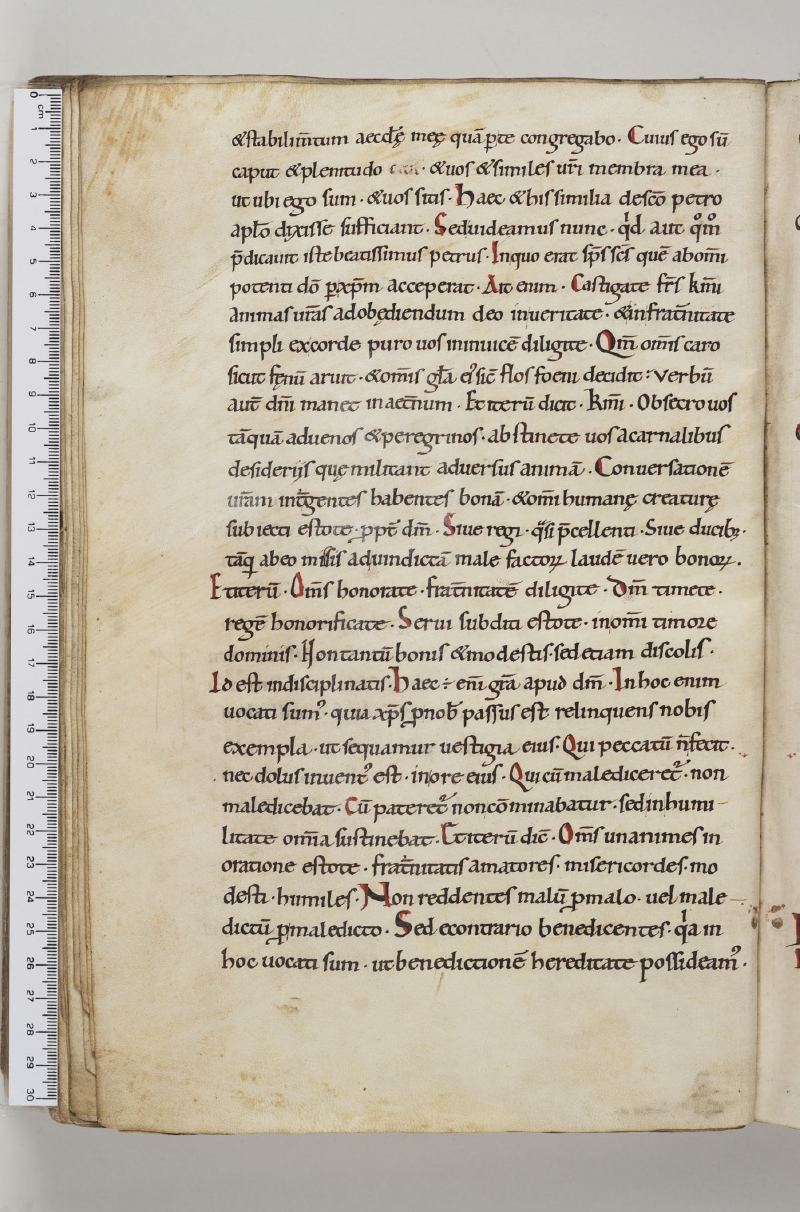 &stabilim̅tum aeccl̅ę meę quā ꝑte congregabo. Cuius ego sū
caput &plenitudo &uos &similes ur̅i membra mea.
ut ubi ego sum. &uos sitis. Haec &his similia de sc̅o petro
apl̅o dixisse sufficiant. Sed uideamus nunc. qͥd aut qͦm̊
p̅dicauit iste beatissimus petrus. In quo erat sp̅s sc̅s quē ab om̅i
potenti dō ꝑ xp̅m acceperat. Ait enim. Castigate fr̅s km̅i
animas ur̅as ad obędiendum deo in ueritate. &in frat̅nitate
simpli ex corde puro uos in inuicē diligite. Qm̅ om̅is caro
sicut fęnū aruit. &om̅is gl̅a ei᾽ sic̅ flos foeni decidit: Verbū
aut̅ dn̅i manet in aet̅num. Et iterū dicit. Km̅i. Obsecro uos
tāquā aduenos &peregrinos. abstinete uos a carnalibus
desiderijs quę militant aduersus animā. Conuersationē
ur̅am int̅ gentes habentes bonā. &om̅i humanę creaturę
subiecti estote. ppt̅ dm̅. Siue regi. qͣsi p̅cellenti. Siue ducibꝫ.
tāq̅ ab eo missis ad uindictā male factoꝝ laudē uero bonoꝝ.
Et iterū. Om̅s honorate. frat̅nitatē diligite. Dm̅ timete.
regē honorificate. Serui subditi estote. in om̅i timore
dominis. Non tantū bonis &modestis. sed etiam discolis.
Id est indisciplinatis. Haec ÷ eni̅ gr̅a apud dm̅. In hoc enim
uocati sum᾽. quia xp̅s ꝓ nob̅ passus est relinquens nobis
exempla. ut sequamur uestigia eius. Qui peccatū n̅ fecit.
nec dolus inuent᾽ est. in ore eius. Qui cū malediceret᾽. non
maledicebat. Cū pateret᾽ non cōminabatur. sed in humi
litate om̅ia sustinebat. Et iterū dic̅. Om̅s unanimes in
oratione estote. frat̅nitatis amatores. misericordes. mo
desti. humiles. Non reddentes malū ꝓ malo. uel male
dictū ꝓ maledicto. Sed econtrario benedicentes. qͥa in
hoc uocati sum. ut benedictionē hereditate possideam᾽.